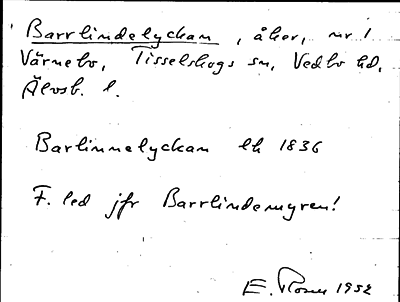 Barrlindelyckan, åker, nr 1
Värnebo, Tisselskogs sn, Vedbo hd,
Älvsb. l.
Barlinnelyckan lk 1836
F. led jfr Barrlindemyren!
E. Rosen 1952